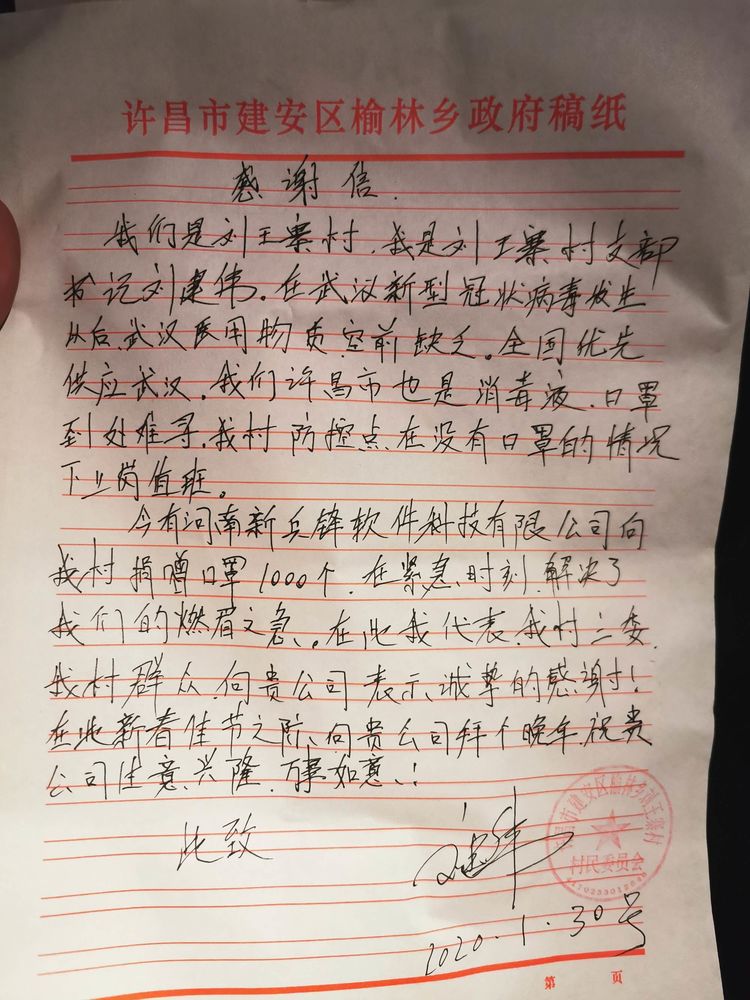 许昌市建安区榆林乡政府稿纸
感谢信.
我们是刘王寨村,我是刘王寨村支部
书记刘建伟。在武汉新型冠状病毒发生
以后,武汉医用物质空前缺乏。全国优先
供应武汉。我们许昌市也是消毒液.口罩
到处难寻,我村防控点在没有口罩的情况
下上岗值班。
今有河南新兵锋软件科技有限公司向
我村捐赠口罩1000个.在紧急时刻,解决了
我们的燃眉之急。在此我代表我村三委,
我村群众,向贵公司表示诚挚的感谢!
在此新春佳节之际、向贵公司拜个晚年,祝贵
公司生意兴隆,万事如意!
此致
刘建伟
许昌市建安区榆林乡刘王寨村
村民委员会
2020.1.30号
第 页